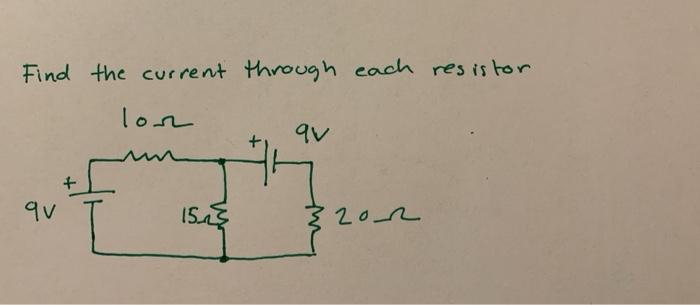 Find the current through each resistor
10Ω
+ 9V
+
9V 15Ω 20Ω